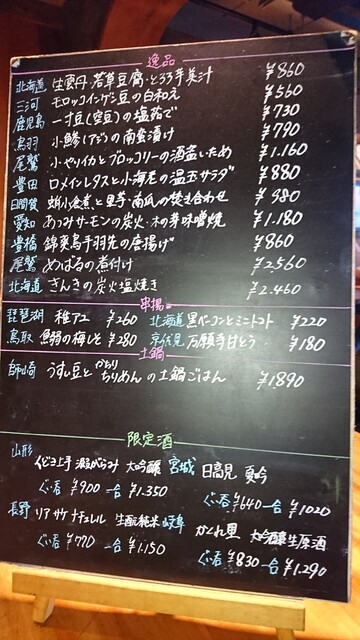 逸品
北海道 生雲丹・若草豆腐・とろろ美汁 ¥860
三河 モロッコインゲン豆の白和え ¥560
鹿児島 一寸豆(空豆)の塩茹で ¥730
鳥羽 小鯵(アジ)の南蛮漬け ¥790
尾鷲 小ヤリイカとブロッコリーの酒盗いため ¥1,160
豊田 ロメインレタスと小海老の温玉サラダ ¥880
日間賀 蛸小倉煮と里芋・南瓜の焚き合わせ ¥980
愛知 あつみサーモンの炭火・木の芽味噌焼 ¥1,180
豊橋 錦爽鳥手羽先の唐揚げ ¥860
尾鷲 めばるの煮付け ¥2,560
北海道 きんきの炭火塩焼き ¥2,460
串揚
琵琶湖 稚アユ ¥260 北海道 黒ベーコンとミニトマト ¥220
鳥取 鰯の梅しそ ¥280 京伏見 万願寺甘とう ¥180
土鍋
師崎 うすい豆とかちりちりめんの土鍋ごはん ¥1890
限定酒
山形 大吟醸 宮城 日高見 夏吟
ぐい呑 ¥900 一合 ¥1,350 ぐい呑 ¥640 一合 ¥1020
長野 リアサケナチュレル 生酛純米 岐阜 かくれ里 大吟醸生原酒
ぐい呑 ¥770 一合 ¥1,150 ぐい呑 ¥830 一合 ¥1,290